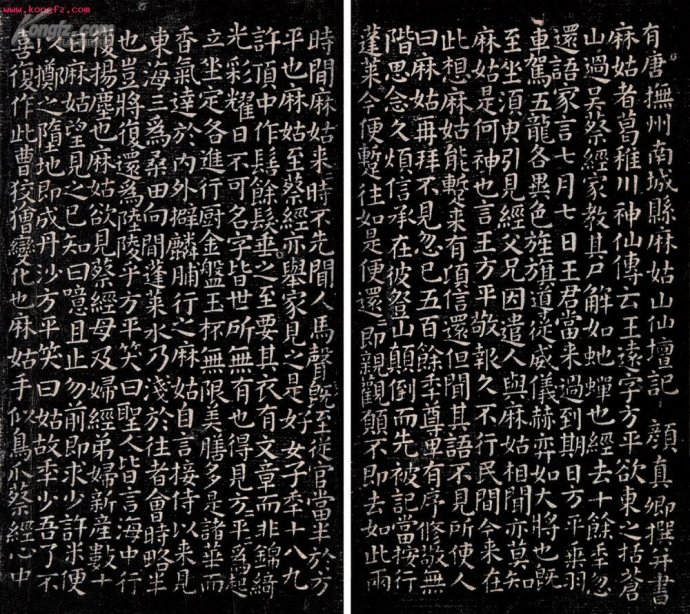 www.kongfz.com
有唐撫州南城縣麻姑山仙壇記 顏真卿撰并書
麻姑者葛稚川神仙傳云王遠字方平欲東之括蒼
山過吳蔡經家教其尸解如虵蟬也經去十餘年忽
還語家言七月七日王君當来過到期日方平乘羽
車駕五龍各異色旌旗導從威儀赫弈如大將也既
至坐須臾引見經父兄因遣人與麻姑相聞亦莫知
麻姑是何神也言王方平敬報久不行民間今来在
此想麻姑能蹔来有頃信還但聞其語不見所使人
曰麻姑再拜不見忽已五百餘年尊卑有序修敬無
階思念久煩信承在彼登山顛倒而先被記當按行
蓬萊今便蹔往如是便還即親觀願不即去如此兩
時間麻姑来時不先聞人馬聲既至從官當半於方
平也麻姑至蔡經亦舉家見之是好女子年十八九
許頂中作髻餘髮垂之至要其衣有文章而非錦綺
光彩耀日不可名字皆世所無有也得見方平為起
立坐定各進行廚金盤玉杯無限美膳多是諸華而
香氣達於內外擗麟脯行之麻姑自言接侍以来見
東海三為桑田向間蓬萊水乃淺於往者會時略半
也豈將復還為陸陵乎方平笑曰聖人皆言海中行
復揚塵也麻姑欲見蔡經母及婦經弟婦新產數十
日麻姑望見之已知曰噫且止勿前即求少許米便
以擲之墮地即成丹沙方平笑曰姑故年少吾了不
喜復作此曹狡獪變化也麻姑手似鳥爪蔡經心中